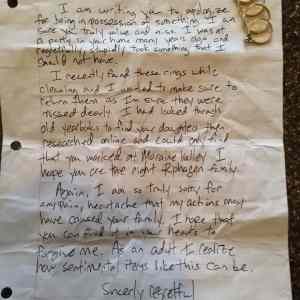 I am writing you to apologize
for being in possession of something I am
sure you truly value and miss. I was at
a party in your home many years ago and
regretfully, stupidly took something that I
should not have.
I recently found these rings while
cleaning and I wanted to make sure to
return them as I'm sure they were
missed dearly. I had looked through
old yearbooks to find your daughter then
researched online and could only find
that you worked at Moraine Valley. I
hope you are the right family.
Again, I am so truly sorry for
any pain, heartache that my actions may
have caused your family. I hope that
you can find it in your hearts to
forgive me. As an adult to realize
how sentimental items like this can be.
Sincerly Regretful